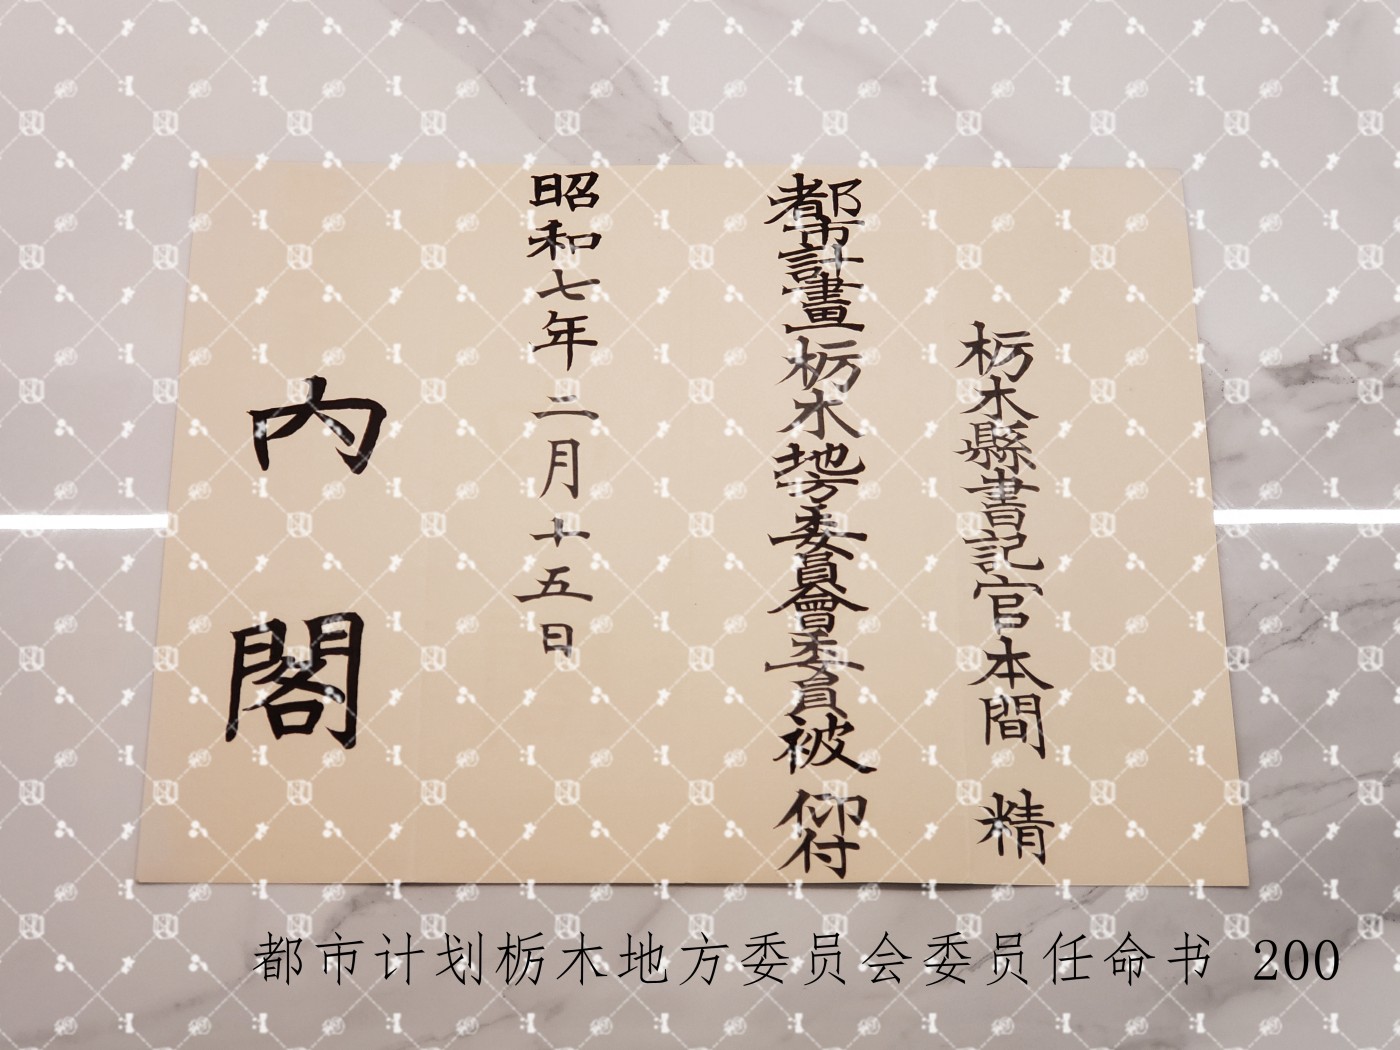 栃木縣書記官本間 精
都市計畫栃木地方委員會委員被 仰付
昭和七年二月十五日
内閣
都市计划栃木地方委员会委员任命书 200